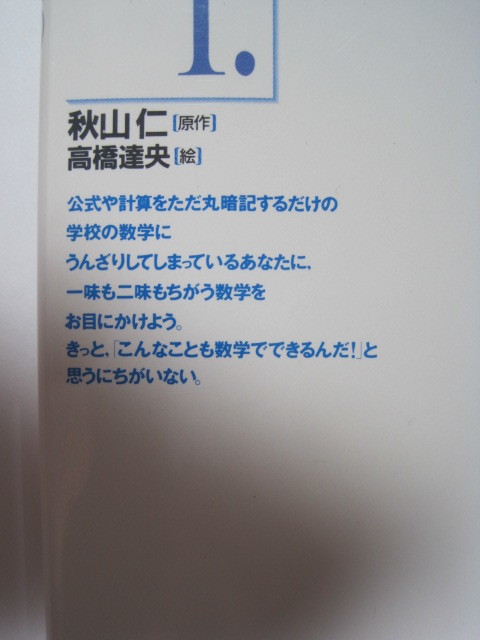 1.
秋山仁[原作]
高橋達央[絵]
公式や計算をただ丸暗記するだけの
学校の数学に
うんざりしてしまっているあなたに,
一味も二味もちがう数学を
お目にかけよう。
きっと,「こんなことも数学でできるんだ!」と
思うにちがいない。